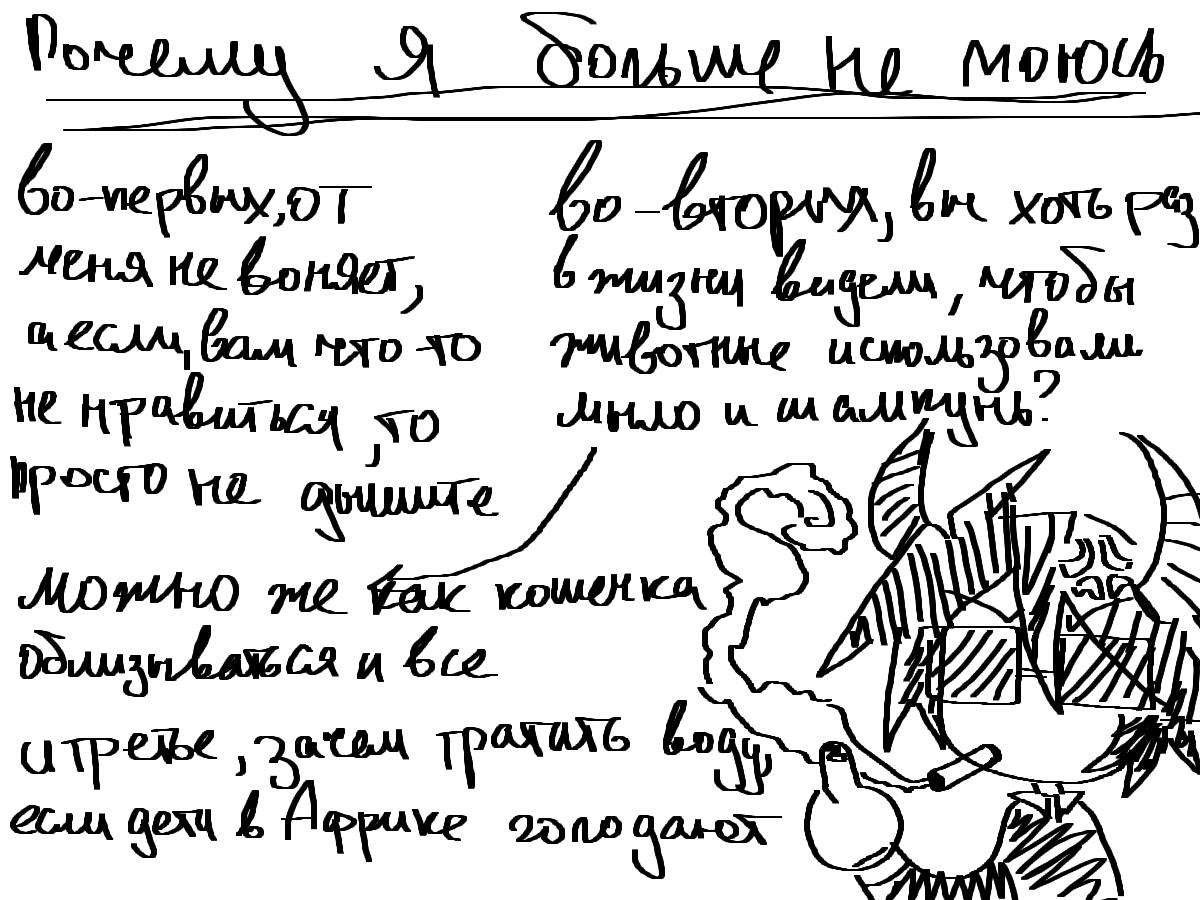 Почему я больше не моюсь
во-первых, от
меня не воняет,
а если, вам что-то
не нравиться, то
просто не дышите
во-вторых, вы хоть раз
в жизни видели, чтобы
животные использовали
мыло и шампунь?
можно же как кошечка
облизываться и все
и третье, зачем тратить воду,
если дети в Африке голодают